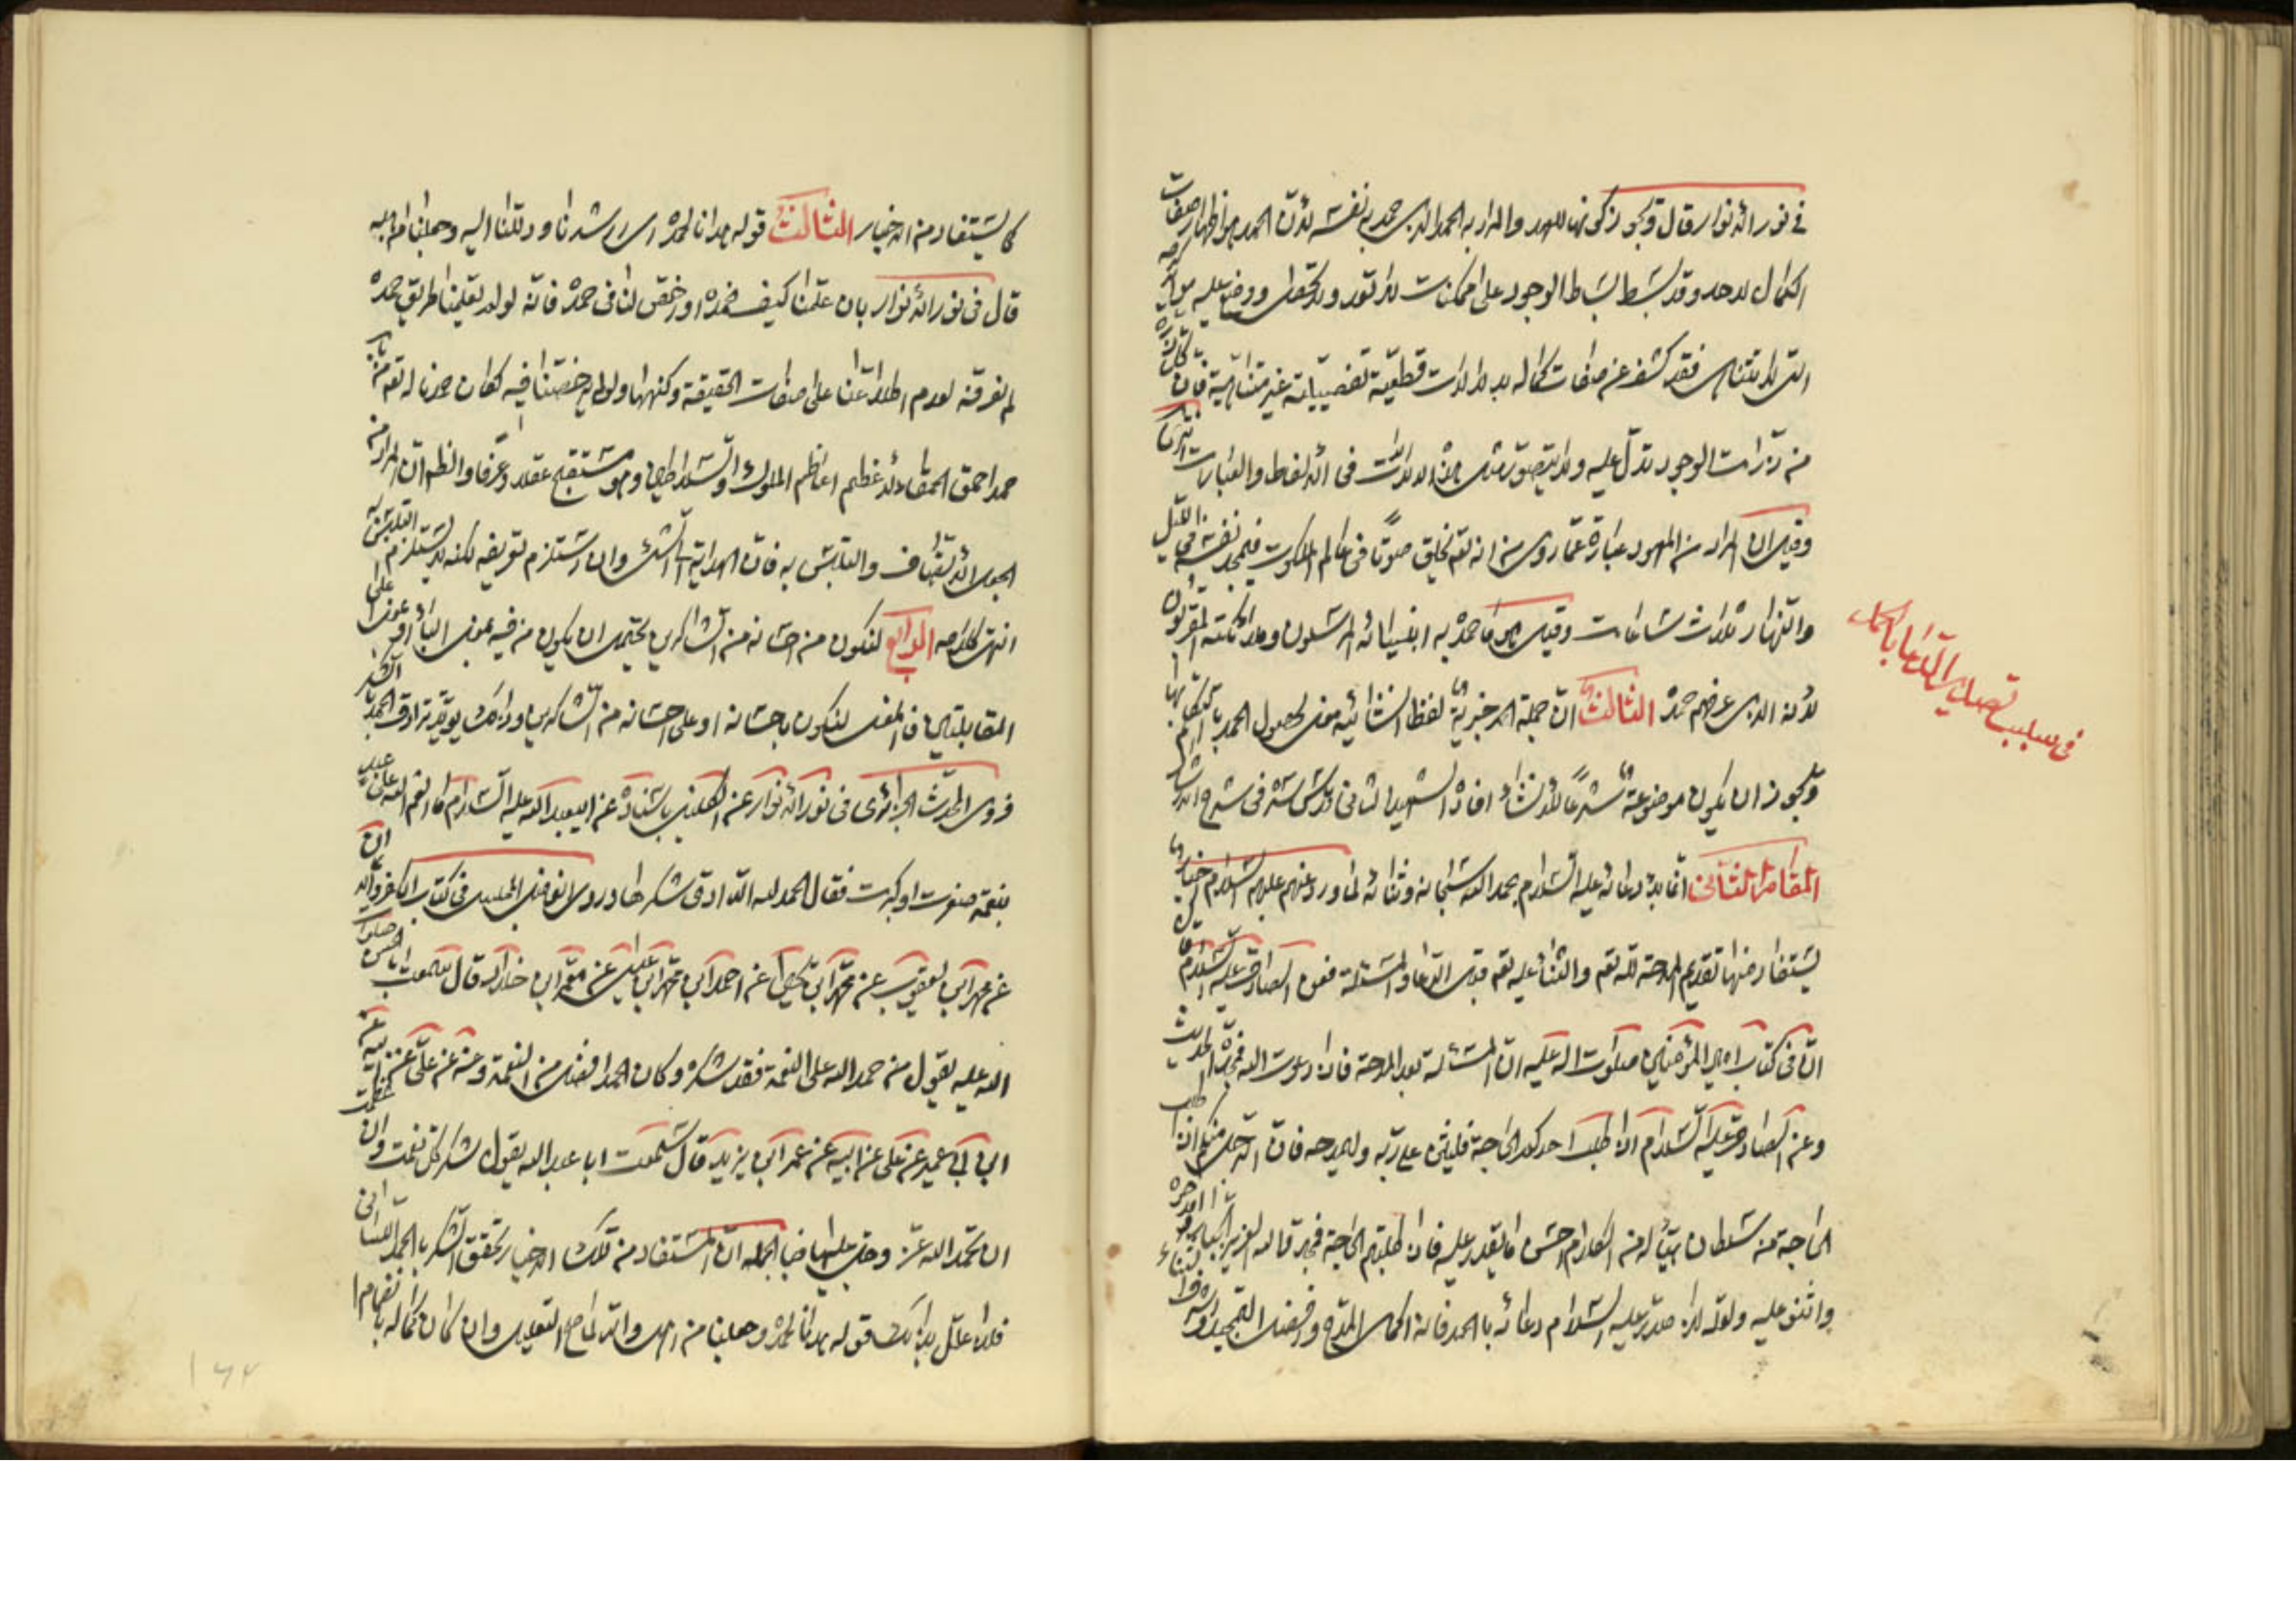 في نور الأنوار وقال ويجوز كونها للعهد والمراد به الحمد الذي حمد به نفسه لأن الحمد هو اظهار صفات
الكمال لاحد وقد بسط بساط الوجود على ممكنات لا تعد ولا تحصى ووضع عليه موائد كرمه
التي لا تتناهى فقد كشف عن صفات كماله بدلالات قطعية تفصيلية غير متناهية فان كل ذرة
من ذرات الوجود تدل عليه ولا يتصور مثل هذه الدلالات في الألفاظ والعبارات انتهى
وقيل ان المراد من المعهود عبارة عما روى من انه تعالى يخلق صوتا في عالم الملكوت فيمجد نفسه في الليل
والنهار ثلاث ساعات وقيل هو ما حمده به انبيائه المرسلون وملائكته المقربون
لأنه الذي عرفهم حمده الثالث ان جملة الخبرية لفظا انشائية معنى لحصول الحمد بالتكلم بها
ويجوز ان يكون موضوعة شرعا للانشاء افاده الشهيد الثاني قدس سره في شرح
المقام الثاني انما بدء دعائه عليه السلام بحمد الله سبحانه وثنائه لما ورد عنهم عليهم السلام اخبار
يستفاد منها تقديم المدحة لله تعالى والثناء عليه تعالى قبل الدعاء والمسئلة فعن الصادق عليه السلام قال
ان في كتاب امير المؤمنين صلوات الله عليه ان المسئلة بعد المدحة فاذا دعوت الله فمجده الحديث
وعن الصادق عليه السلام اذا طلب احدكم الحاجة فليثن على ربه وليمدحه فان الرجل منكم اذا طلب
الحاجة من سلطان هيأ له من الكلام احسن ما يقدر عليه فاذا طلبتم الحاجة فمجدوا الله العزيز الجبار وامدحوه
واثنوا عليه ولعله لذا صدر عليه السلام دعائه بالحمد فانه اكمل المدح وافضل التمجيد واشرف الثناء
في سبب تصدير الدعاء بالحمد
كما يستفاد من الاخبار الثالث قوله هدانا لحمده اي ارشدنا ودلنا اليه وجعلنا من اهله
قال في نور الأنوار بان علمنا كيف نحمده ورخص لنا في حمده فانه لولا تعليمنا طريق حمده
لم نعرفه لعدم اطلاعنا على صفات الحقيقة وكنهها ولو لم يرخصنا فيه لكان حمدنا له تعالى من باب
حمد احمق الحمقاء لأعظم اعاظم الملوك والسلاطين وهو مستقبح عقلا وعرفا والظاهر ان المراد من
الجعل الاتصاف والتلبس به فان الهداية الى الشيء وان استلزم تعريفه لكنه لا يستلزم التلبس به
انتهى كلامه الرابع لنكون من احسانه من الشاكرين يحتمل ان يكون من فيه بمعنى الباء او بمعنى على
المقابلتين فالمعنى لنكون باحسانه او على احسانه من الشاكرين وذلك يؤيد ترادف الحمد بالشكر
فروى المحدث الجزائري في نور الأنوار عن الكليني باسناده عن ابي عبد الله عليه السلام ما انعم الله على عبد
بنعمة صغرت او كبرت فقال الحمد لله الا ادى شكرها وروى الفاضل المجلسي في كتاب
عن محمد ابن يعقوب عن محمد ابن يحيى عن احمد ابن محمد ابن عيسى عن معمر ابن خلاد قال سمعت ابا الحسن صلوات
الله عليه يقول من حمد الله على النعمة فقد شكره وكان الحمد افضل من النعمة وعنه عن علي عن ابيه عن
ابن ابي عمير عن علي عن ابيه عن عمر ابن يزيد قال سمعت ابا عبد الله يقول شكر كل نعمة وان عظمت
ان تحمد الله عز وجل عليها فبالجملة ان المستفاد من تلك الاخبار تحقق الشكر بالحمد اللساني
فلذا علل بذلك قوله هدانا لحمده وجعلنا من اهله والله لامع التعليل وان كان كماله بانضمام
۱۶۴